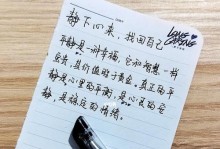 静下心来，找回自己
平静是一种幸福，它和智慧一样
宝贵，其价值胜于黄金。真正的平
静是心里的平衡，是心灵的安
静，是稳定的情绪。